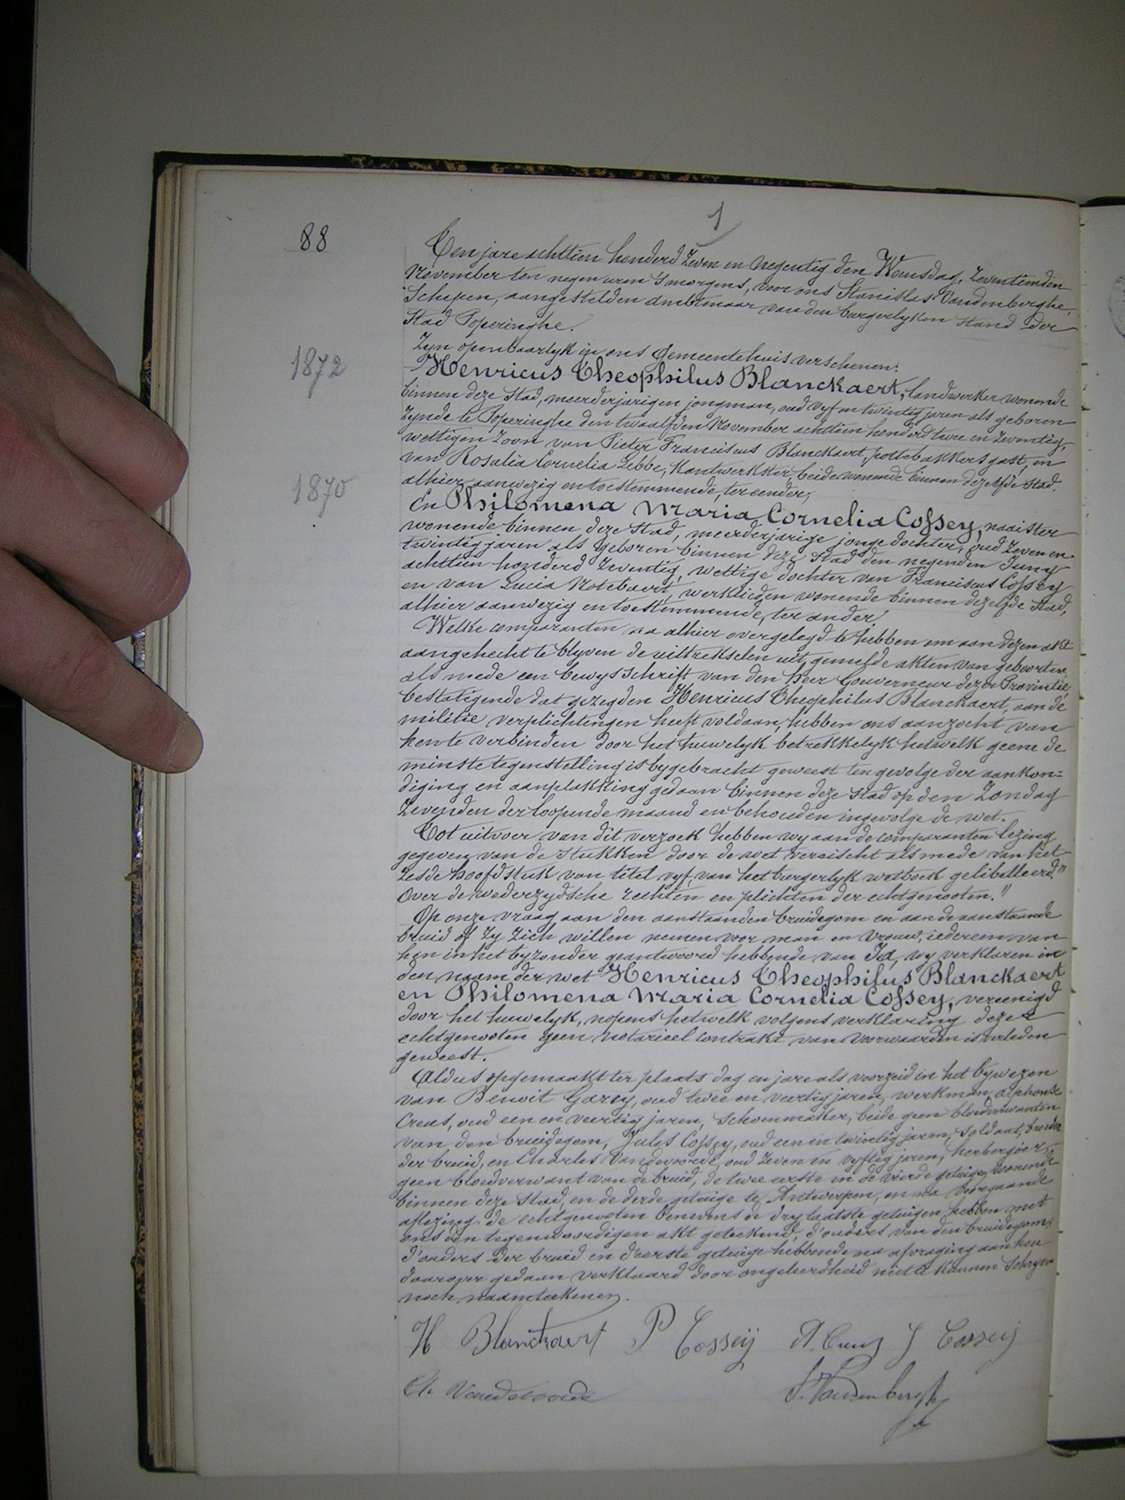 1
88
Ten jare achttien honderd Zeven en Negentig den Woensdag, Zeventienden
November ten negen uren s'morgens, voor ons Stanislas Vandenberghe,
Schepen, aangestelden ambtenaar van den burgerlyken stand der
Stad Poperinghe.
Zyn openbaarlyk in ons Gemeentehuis verschenen:
1872
Henricus Theophilus Blanckaert, landwerker wonende
binnen deze Stad, meerderjarigen jongman, oud vyf en twintig jaren als geboren
zynde te Poperinghe den twaalfden November achttien honderd twee en Zeventig,
wettigen Zoon van Pieter Franciscus Blanckaert, pottebakkers gast, en
van Rosalia Cornelia Lebbe, kantwerkster, beide wonende binnen dezelfde Stad,
alhier aanwezig en toestemmende, ter eender;
1870
En Philomena Maria Cornelia Cossey, naaister
wonende binnen deze Stad, meerderjarige jonge dochter, oud Zeven en
twintig jaren als geboren binnen deze Stad den negenden Juny
achttien honderd Zeventig, wettige dochter van Franciscus Cossey
en van Lucia Notebaert, werklieden wonende binnen dezelfde Stad,
alhier aanwezig en toestemmende, ter ander.
Welke comparanten na alhier overgelegd te hebben om aan dezen akt
aangehecht te blyven de uittrekselen uit gemelde akten van geboorten,
als mede een bewysschrift van den Heer Gouverneur dezer Provintie,
bestatigende dat gezegden Henricus Theophilus Blanckaert, aan de
militie verplichtingen heeft voldaan, hebben ons aanzocht van
hen te verbinden door het huwelyk betrekkelyk hetwelk geene de
minste tegenstelling is bygebracht geweest ten gevolge der aankon-
diging en aanplakking gedaan binnen deze Stad op den Zondag
Zevenden der loopende maand en behouden ingevolge de wet.
Tot uitvoer van dit verzoek hebben wy aan de comparanten lezing
gegeven van de stukken door de wet vereischt als mede van het
Zesde hoofdstuk van titel vyf van het burgerlyk wetboek gelibelleerd "
Over de wederzydsche rechten en plichten der echtgenooten."
Op onze vraag aan den aanstaanden bruidegom en aan de aanstaande
bruid of zy zich willen nemen voor man en vrouw, iedereen van
hen in het byzonder geantwoord hebbende van Ja, wy verklaren in
den naam der wet Henricus Theophilus Blanckaert
en Philomena Maria Cornelia Cossey, vereenigd
door het huwelyk, nopens hetwelk volgens verklaring dezer
echtgenooten geen notarieel contrakt van voorwaarden is verleden
geweest.
Aldus opgemaakt ter plaats dag en jare als voorzeid in het bywezen
van Benoit Garcy, oud twee en veertig jaren, werkman, Alphonse
oud een en veertig jaren, schoenmaker, beide geen bloedverwanten
van den bruidegom, Jules Cossey, oud een en twintig jaren, soldaat, broeder
der bruid, en Charles Vandevoorde, oud Zeven en vyftig jaren, herbergier,
geen bloedverwant van de bruid, de twee eerste en de vierde getuige wonende
binnen deze Stad, en de derde getuige te Antwerpen, en na voorgaande
aflezing de echtgenooten benevens de dry laatste getuigen hebben met
ons den tegenwoordigen akt geteekend, d'ouders van den bruidegom,
d'ouders der bruid en d'eerste getuige hebbende na afvraging aan hen
daarover gedaan verklaard door ongeleerdheid niet te kunnen schryven
noch naamteekenen.
H Blanckaert P Cossey A. J Cossey
Ch Vandevoorde S. Vandenberghe